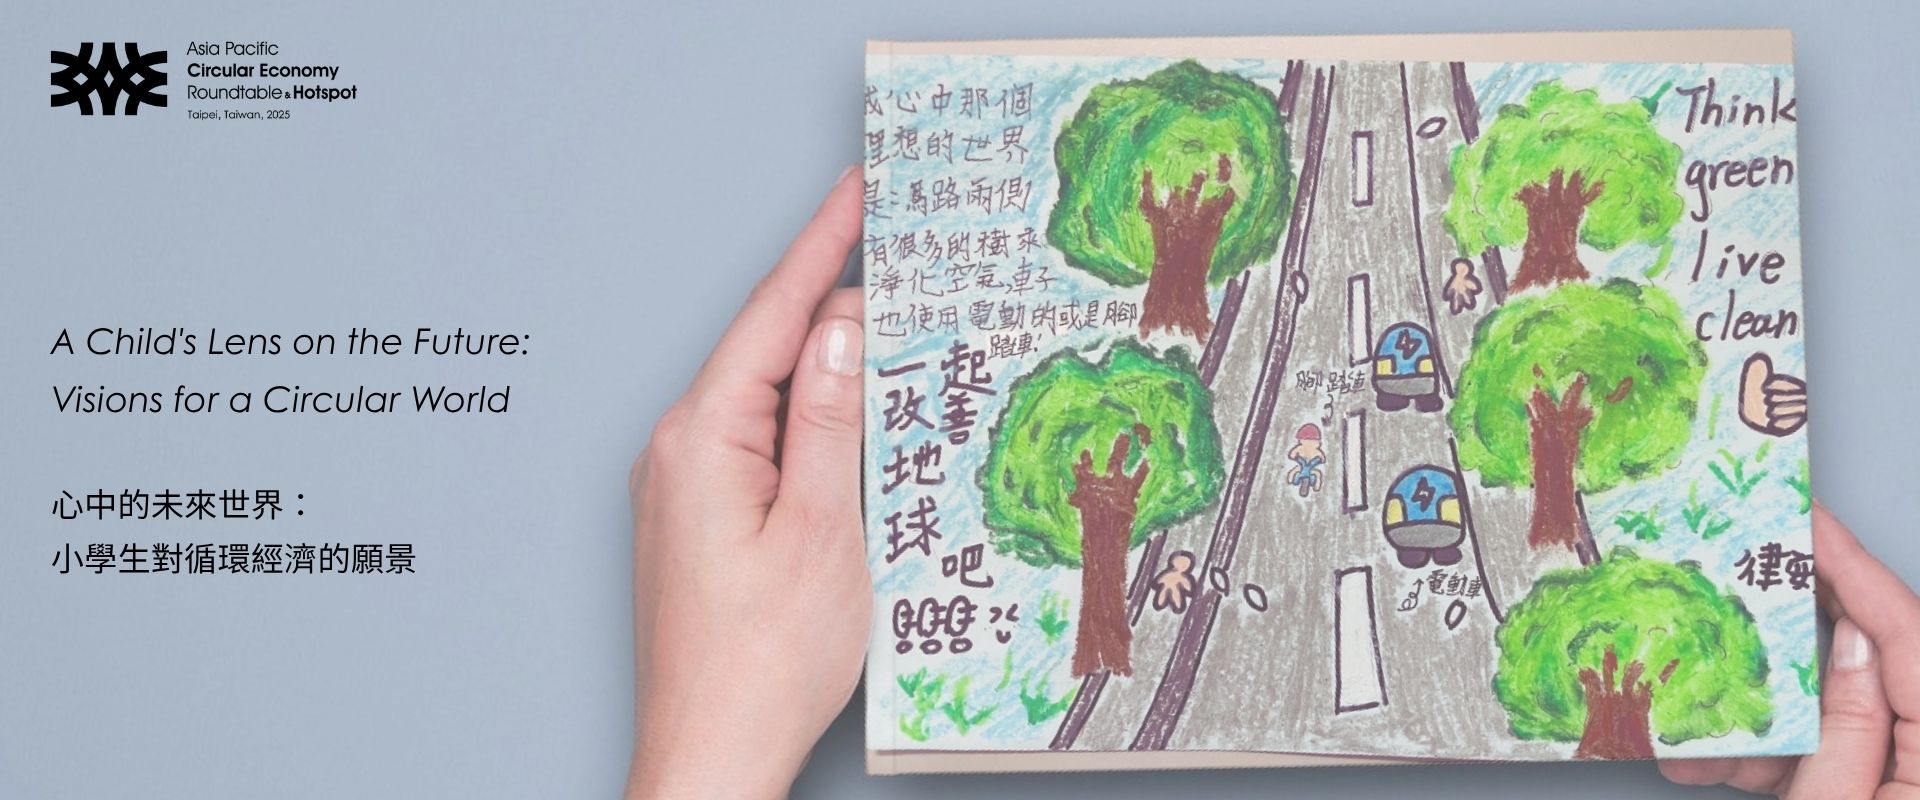 Asia Pacific
Circular Economy
Roundtable & Hotspot
Taipei, Taiwan, 2025
A Child's Lens on the Future:
Visions for a Circular World
心中的未來世界：
小學生對循環經濟的願景
我心中那個
理想的世界
是:馬路兩側
有很多的樹來
淨化空氣,車子
也使用電動的或是腳
踏車!
一起
改善
地
球
吧
!!!
腳踏車
電動車
Think
green
live
clean
律安